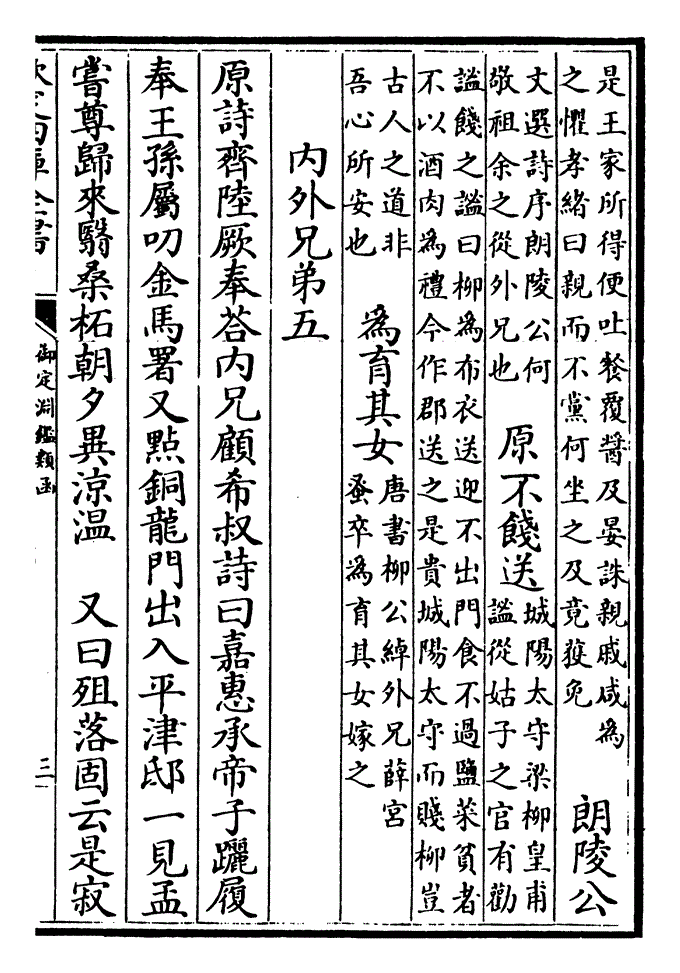 是王家所得便吐餐覆醬及晏誅親戚咸為
之懼孝緒曰親而不黨何坐之及竟獲免
朗陵公
文選詩序朗陵公何
敬祖余之從外兄也
原不餞送
城陽太守梁柳皇甫
謐從姑子之官有勸
謐餞之謐曰柳為布衣送迎不出門食不過鹽菜貧者
不以酒肉為禮今作郡送之是貴城陽太守而賤柳豈
古人之道非
吾心所安也
為育其女
唐書柳公綽外兄薛宮
蚤卒為育其女嫁之
内外兄弟五
原詩齊陸厥奉荅内兄顧希叔詩曰嘉惠承帝子躧履
奉王孫屬叨金馬署又點銅龍門出入平津邸一見孟
嘗尊歸來翳桑柘朝夕異涼温 又曰殂落固云是寂
欽定四庫全書
御定淵鑑類函
三